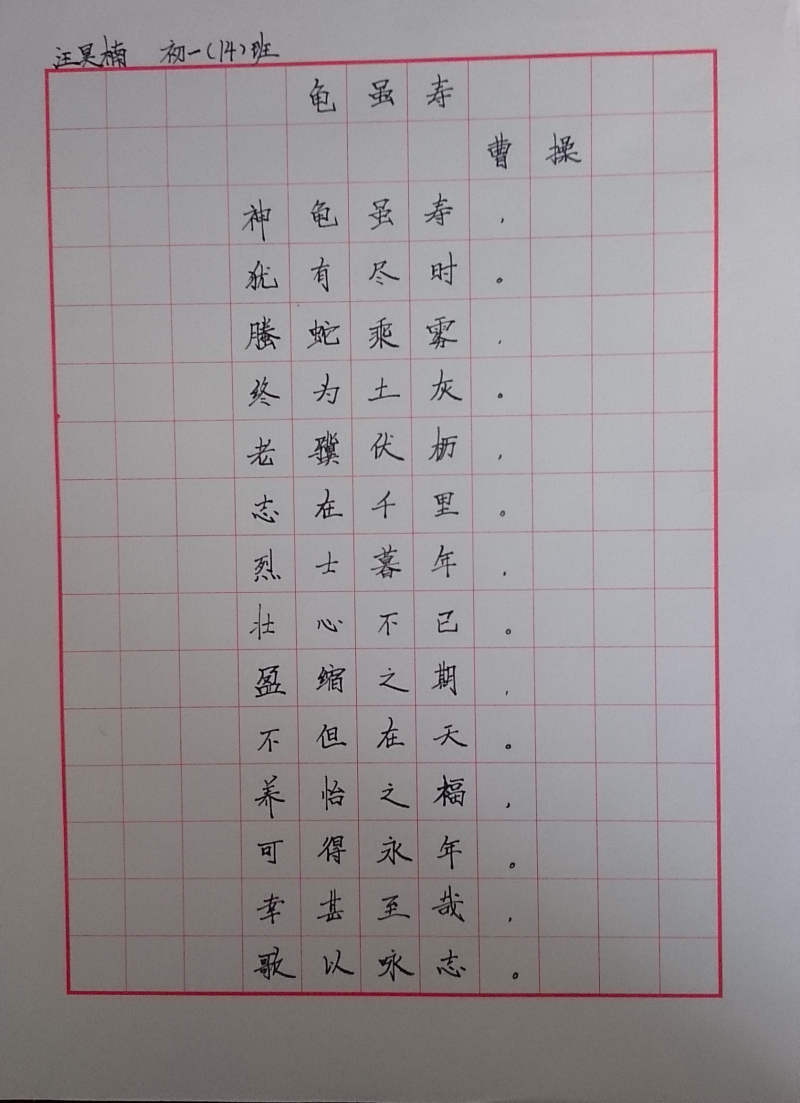 汪昊楠 初一(14)班
龟虽寿
曹操
神龟虽寿，
犹有尽时。
螣蛇乘雾，
终为土灰。
老骥伏枥，
志在千里。
烈士暮年，
壮心不已。
盈缩之期，
不但在天。
养怡之福，
可得永年。
幸甚至哉，
歌以咏志。